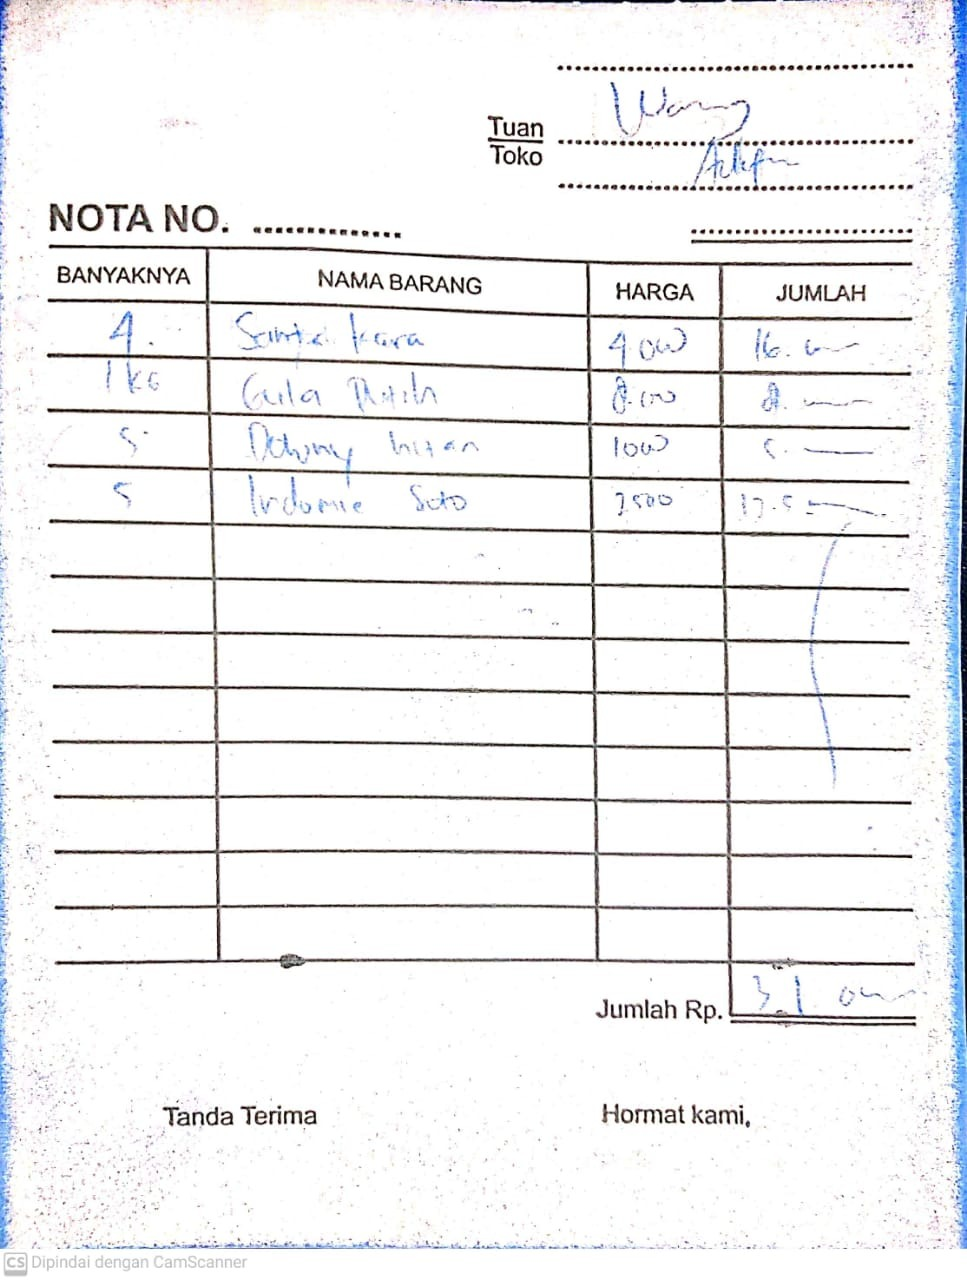 Tuan
Toko
Warung
NOTA NO.
BANYAKNYA NAMA BARANG HARGA JUMLAH
4. Santan kara 4000 16.
1 KG Gula Putih 8.000 8.
5 Downy hitam 1000 5.
5 Indomie Soto 3500 17.5
Jumlah Rp. 31
Tanda Terima Hormat kami,
CS Dipindai dengan CamScanner